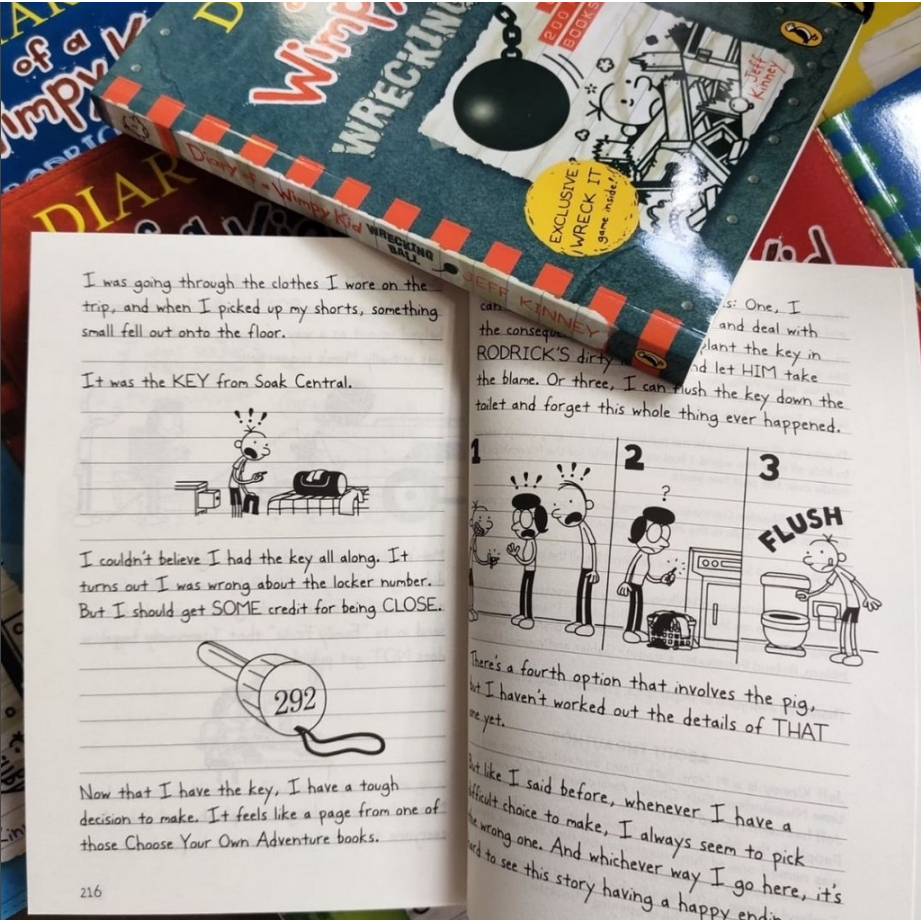 of a
DIAR
Wimpy
WRECKING
200
BOOKS
Jeff
Kinney
EXCLUSIVE
WRECK IT
game inside!
Diary of a Wimpy Kid WRECKING
BALL
JEFF KINNEY
I was going through the clothes I wore on the
trip, and when I picked up my shorts, something
small fell out onto the floor.
It was the KEY from Soak Central.
! ! !
I couldn't believe I had the key all along. It
turns out I was wrong about the locker number.
But I should get SOME credit for being CLOSE.
292
Now that I have the key, I have a tough
decision to make. It feels like a page from one of
those Choose Your Own Adventure books.
216
One, I
can and deal with
the the key in
RODRICK'S dirty let HIM take
the blame. Or three, I can flush the key down the
toilet and forget this whole thing ever happened.
1
! ! !
! ! !
2
?
3
FLUSH
There's a fourth option that involves the pig,
but I haven't worked out the details of THAT
one yet.
But like I said before, whenever I have a
difficult choice to make, I always seem to pick
the wrong one. And whichever way I go here, it's
hard to see this story having a happy